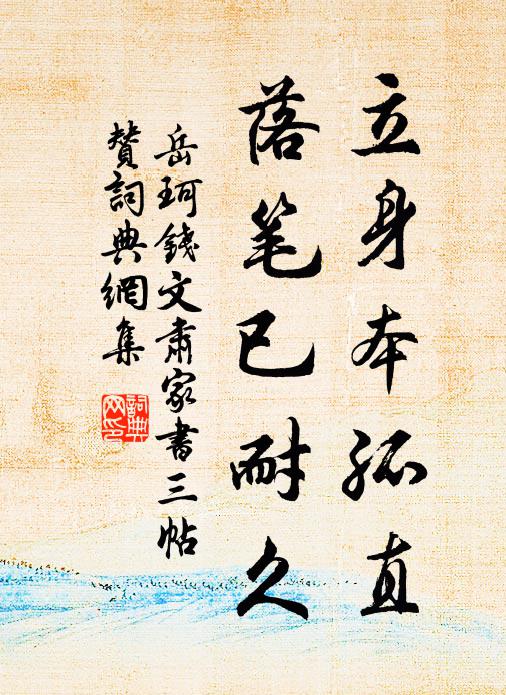 立身本孤直
落笔已耐久
岳珂錢文肅家書三帖
赞詞典網集
詞典
网印